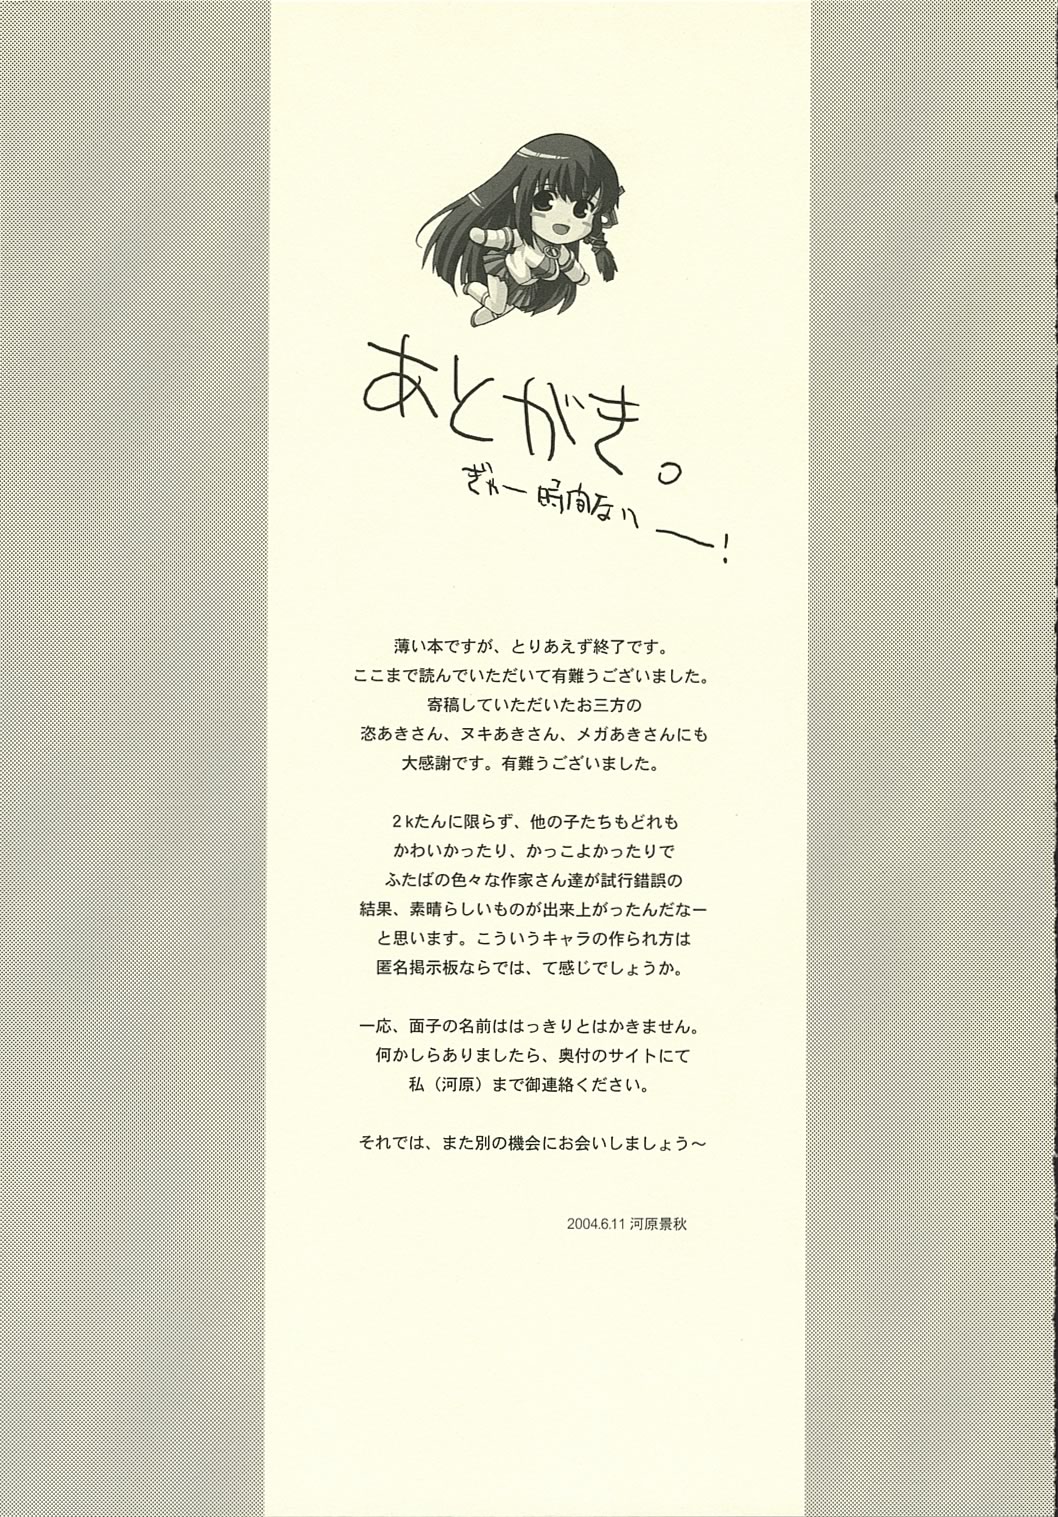 あとがき。
ぎゃー時間ないー!
薄い本ですが、とりあえず終了です。
ここまで読んでいただいて有難うございました。
寄稿していただいたお三方の
恣あきさん、ヌキあきさん、メガあきさんにも
大感謝です。有難うございました。
2kたんに限らず、他の子たちもどれも
かわいかったり、かっこよかったりで
ふたばの色々な作家さん達が試行錯誤の
結果、素晴らしいものが出来上がったんだなー
と思います。こういうキャラの作られ方は
匿名掲示板ならでは、て感じでしょうか。
一応、面子の名前ははっきりとはかきません。
何かしらありましたら、奥付のサイトにて
私（河原）まで御連絡ください。
それでは、また別の機会にお会いしましょう～
2004.6.11 河原景秋